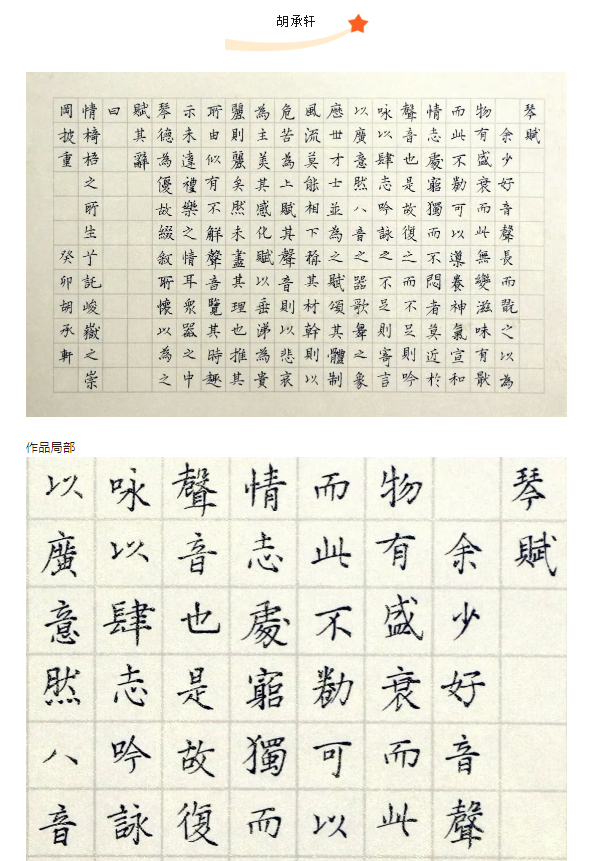 胡承轩
琴賦
余少好音聲長而翫之以為
物有盛衰而此無變滋味有猒
而此不勌可以導養神氣宣和
情志處窮獨而不悶者莫近於
聲音也是故復之而不足則吟
咏以肆志吟詠之不足則寄言
以廣意然八音之器歌舞之象
歷世才士並為之賦頌其體制
風流莫能相下稱其材幹則以
危苦為上賦其聲音則以悲哀
為主美其感化賦以垂涕為貴
麗則麗矣然未盡其理也推其
所由似有不解聲音覽其時趣
示未達禮樂之情耳衆器之中
琴德為優故綴叙所懷以為之
賦其辭
曰
情椅梧之所生兮託峻嶽之崇
岡披重 癸卯胡承軒
作品局部
琴賦
余少好音聲
物有盛衰而此
而此不勌可以
情志處窮獨而
聲音也是故復
咏以肆志吟詠
以廣意然八音